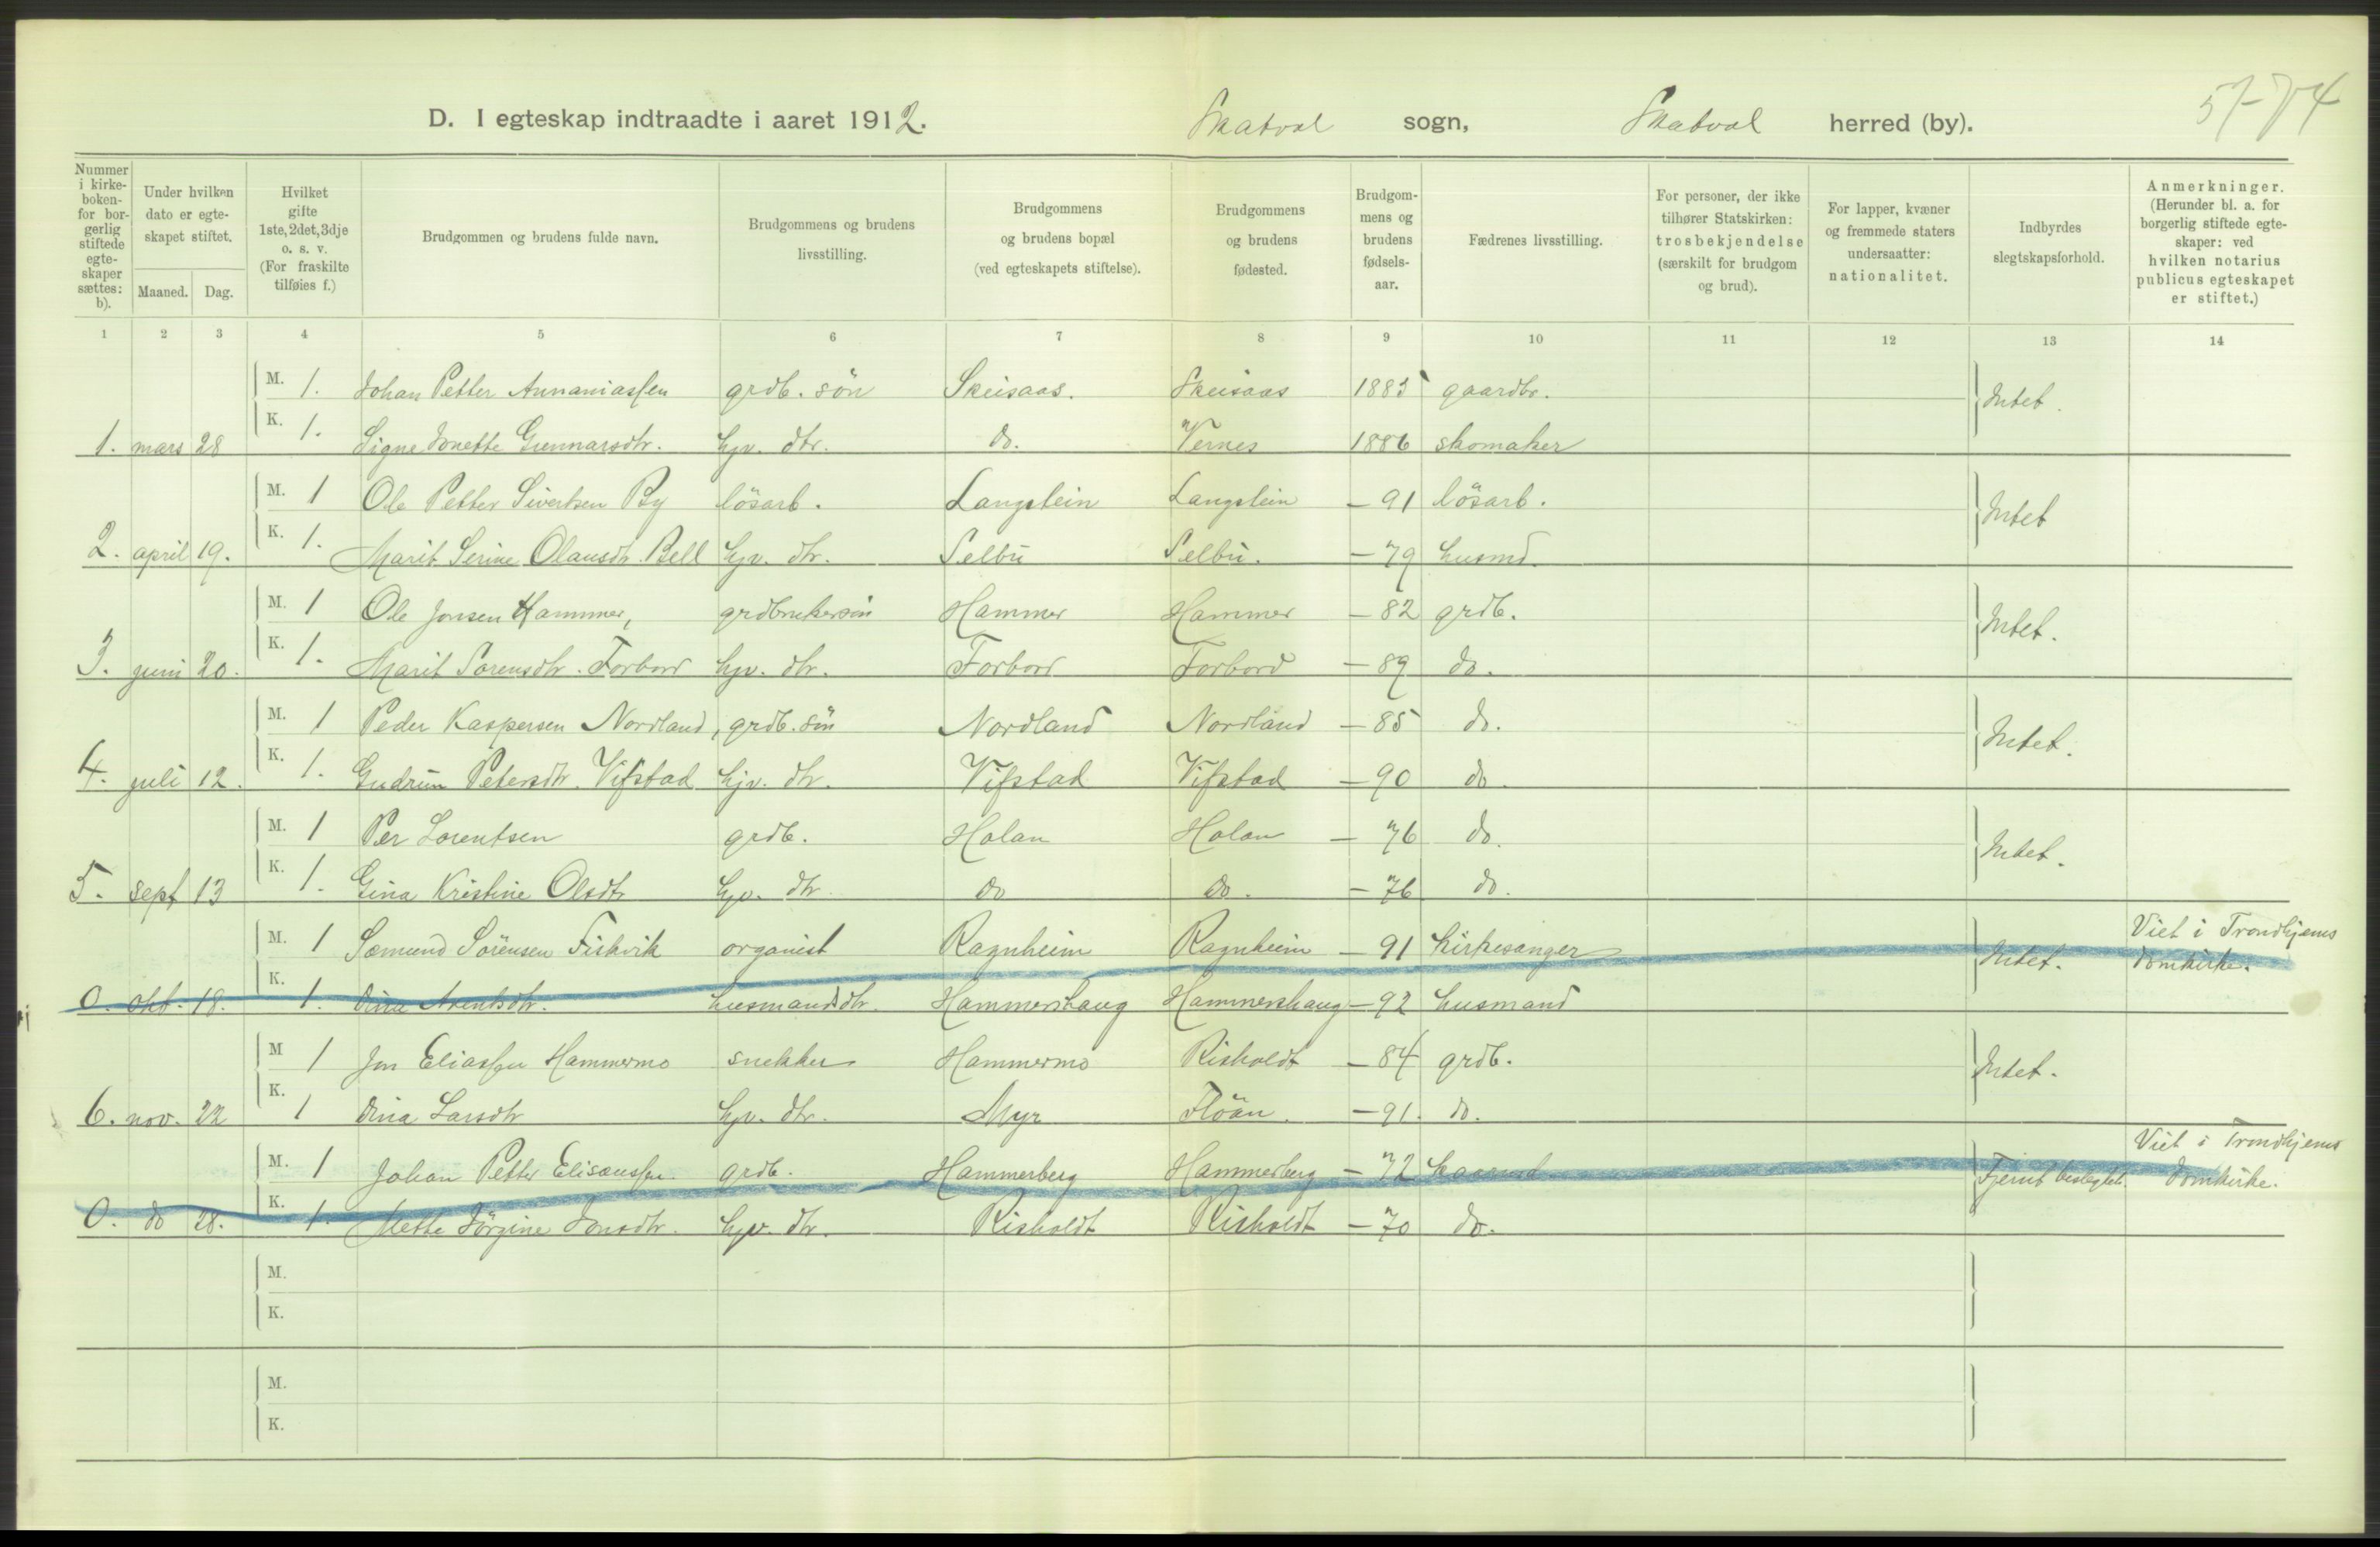 57-74
D. I egteskap indtraadte i aaret 1912. Skatval sogn, Skatval herred (by).
Nummer i kirke-boken- for bor-gerlig stiftede egte-skaper sættes: b).
Under hvilken dato er egte-skapet stiftet.
Maaned. Dag.
Hvilket gifte 1ste, 2det, 3dje o. s. v. (For fraskilte tilføies f.)
Brudgommen og brudens fulde navn.
Brudgommens og brudens livsstilling.
Brudgommens og brudens bopæl (ved egteskapets stiftelse).
Brudgommens og brudens fødested.
Brudgom-mens og brudens fødsels-aar.
Fædrenes livsstilling.
For personer, der ikke tilhører Statskirken: trosbekjendelse (særskilt for brudgom og brud).
For lapper, kvæner og fremmede staters undersaatter: nationalitet.
Indbyrdes slegtskapsforhold.
Anmerkninger. (Herunder bl. a. for borgerlig stiftede egte-skaper: ved hvilken notarius publicus egteskapet er stiftet.)
1 2 3 4 5 6 7 8 9 10 11 12 13 14
M. 1. Johan Petter Annaniassen grdb. søn Skeisaas. Skeisaas 1885 gaardbr. Intet.
1. mars 28 K. 1. Signe Jonette Gunnarsdtr. hjv. dtr. do. Vernes 1886 skomaker
M. 1 Ole Petter Sivertsen By løsarb. Langstein Langstein - 91 løsarb. Intet
2. april 19. K. 1. Marit Serine Olausdtr. Bell hjv. dtr. Selbu Selbu. - 79 husmd.
M. 1 Ole Jonsen Hammer, grdbrukersøn Hammer Hammer - 82 grdb. Intet.
3. juni 20. K. 1. Marit Sørensdtr. Forbord hjv. dtr. Forbord Forbord - 89 do.
M. 1 Peder Kaspersen Nordland, grdb. søn Nordland Nordland - 85 do. Intet.
4. juli 12. K. 1. Gudrun Petersdtr. Vifstad hjv. dtr. Vifstad Vifstad - 90 do.
M. 1 Per Lorentsen grdb. Holan Holan - 76 do. Intet.
5. sept 13 K. 1. Gina Kristine Olsdtr hjv. dtr. do do. - 76 do.
M. 1 Sæmund Sørensen Fiskvik organist Ragnheim Ragnheim - 91 kirkesanger Intet. Viet i Trondhjems domkirke.
0. okt. 18. K. 1. Dina Arentsdtr. husmandsdtr. Hammershaug Hammershaug - 92 husmand
M 1 Jon Eliassen Hammermo snekker Hammermo Risholdt - 84 grdb. Intet.
6. nov. 22 K. 1 Dina Larsdtr hjv. dtr. Myr Fløan. - 91. do.
M. 1 Johan Petter Elisæussen grdb. Hammerberg Hammerberg - 72 Fjernt beslegtet. Viet i Trondhjems domkirke.
0. do 28. K. 1. Mette Jørgine Jonsdtr. hjv. dtr. Risholdt Risholdt - 70 do.
M.
K.
M.
K.